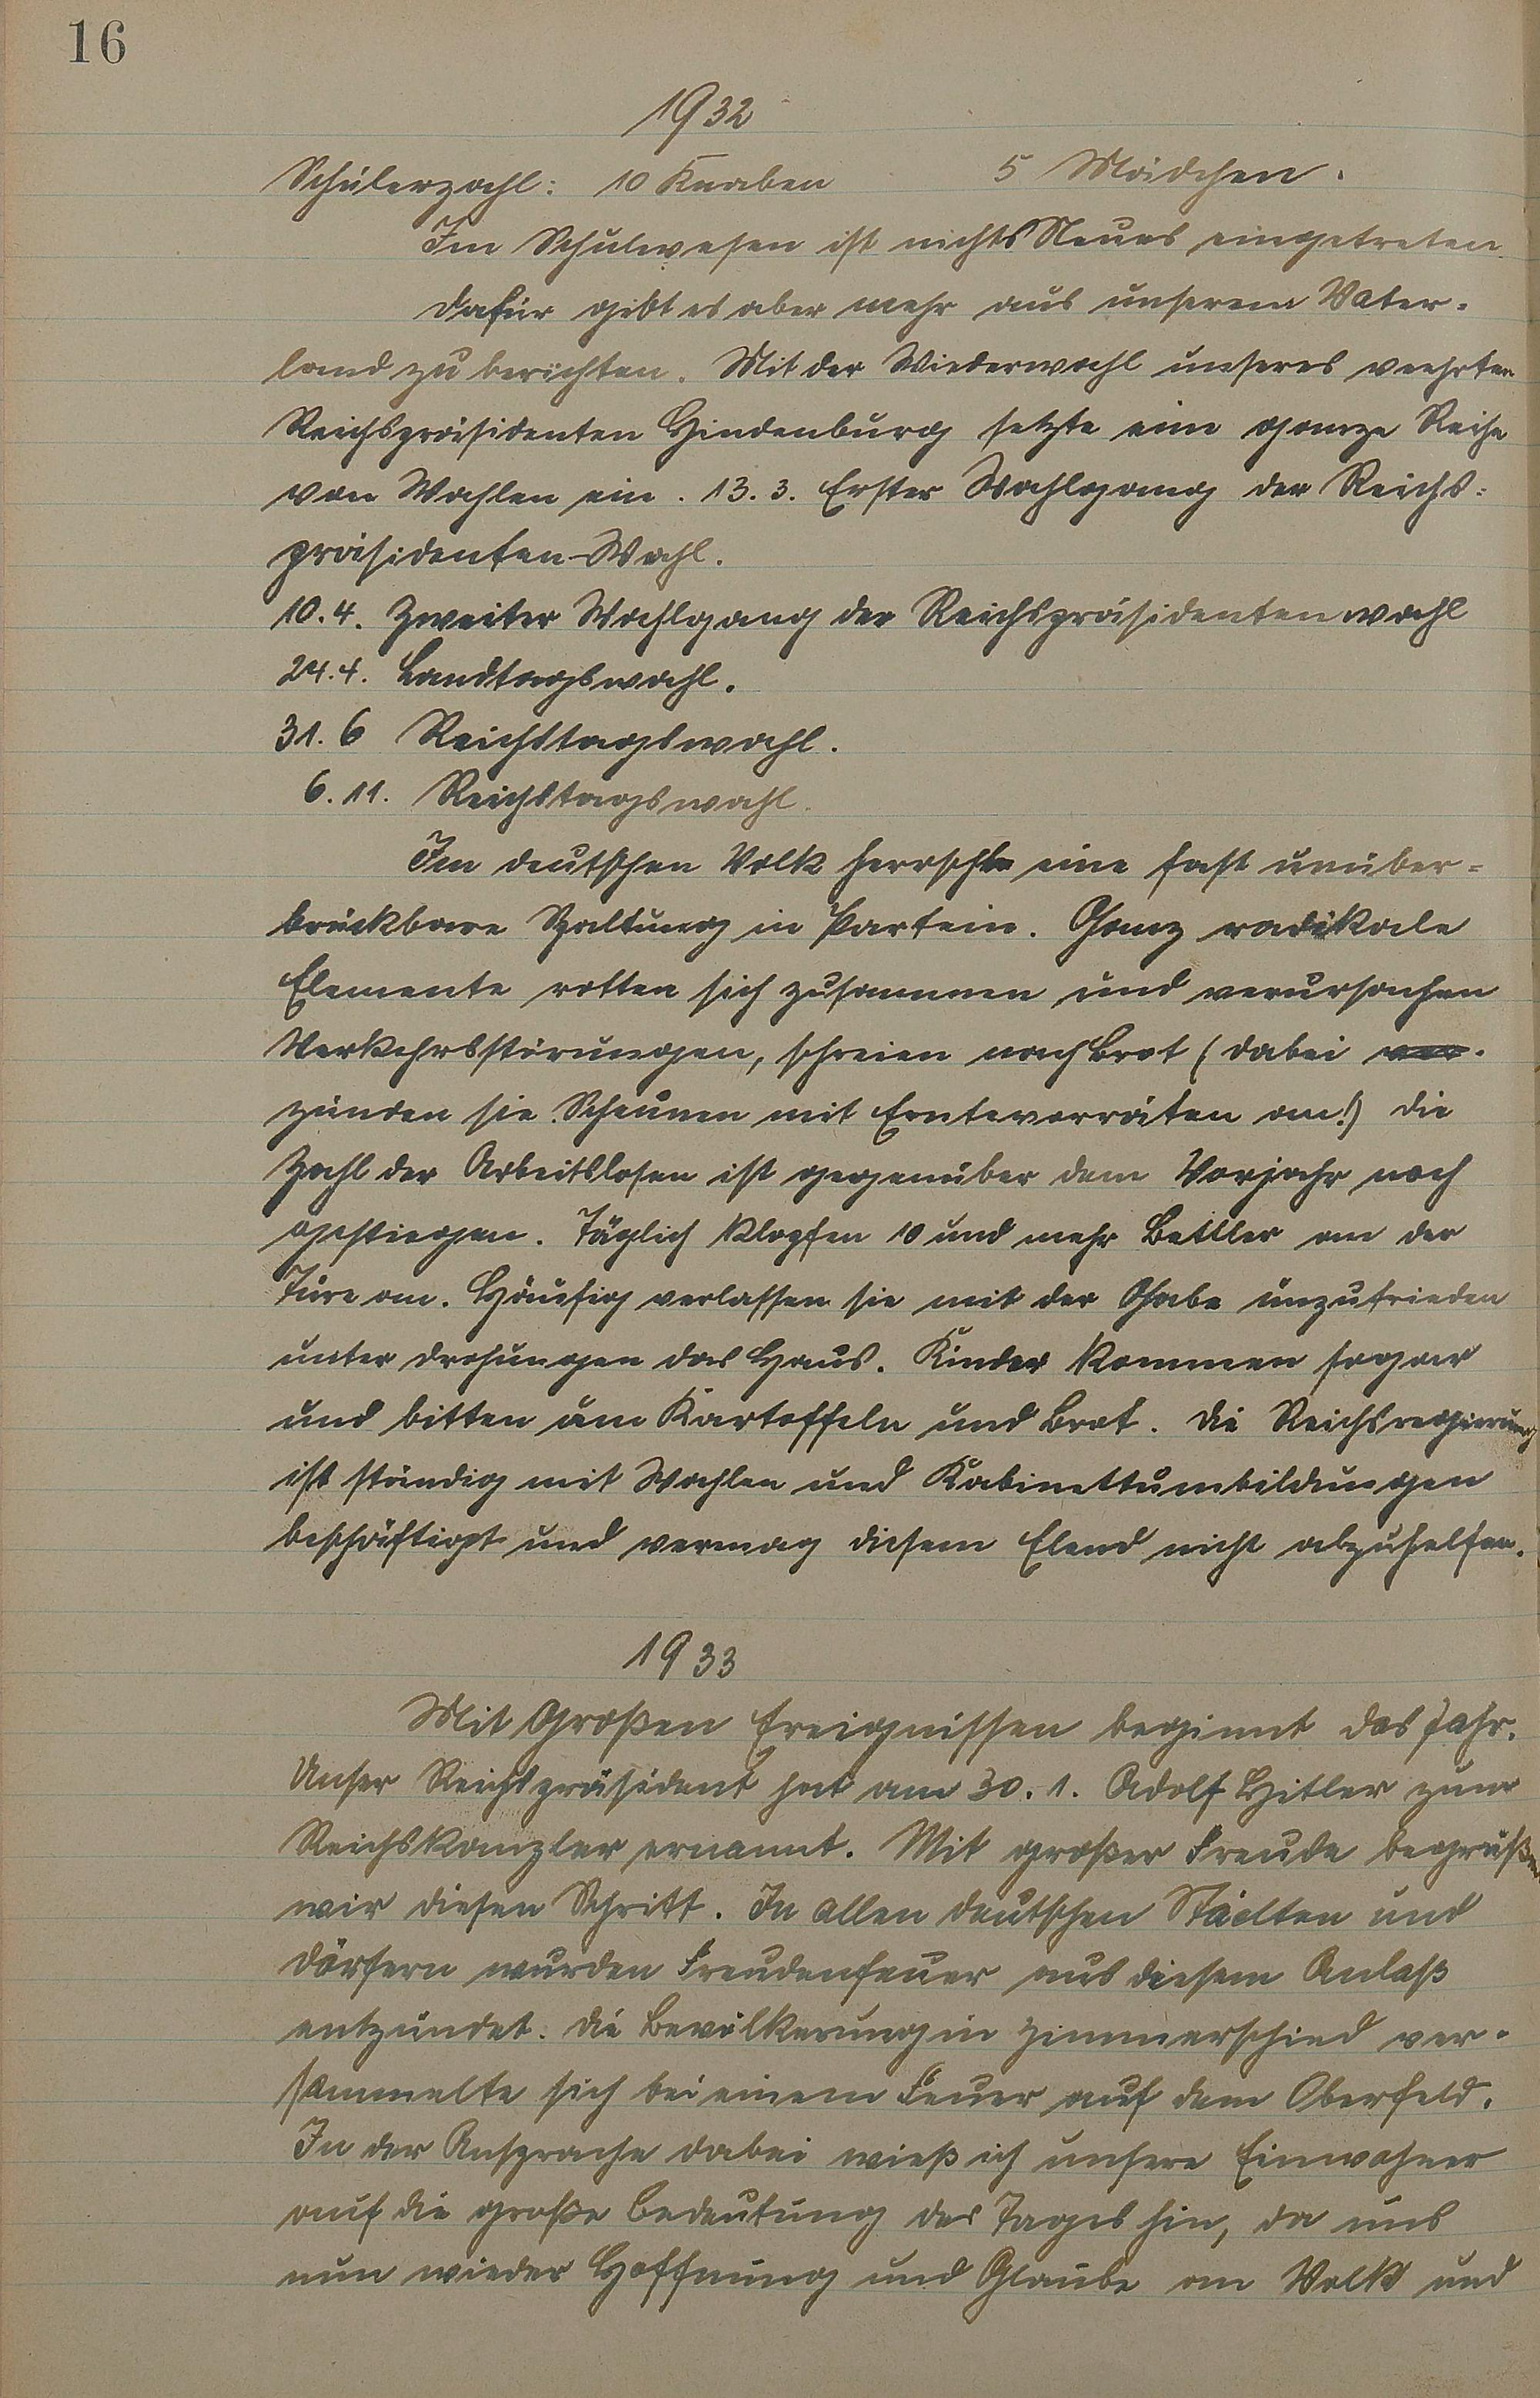 16
1932
Schülerzahl: 10 Knaben 5 Mädchen.
Im Schulwesen ist nichts Neues eingetreten
Dafür gibt es aber mehr aus unserem Vater-
land zu berichten. Mit der Wiederwahl unseres verehrten
Reichspräsidenten Hindenburg setzte eine ganze Reihe
von Wahlen ein. 13.3. Erster Wahlgang der Reichs-
präsidenten-Wahl.
10.4. Zweiter Wahlgang der Reichspräsidentenwahl
24.4. Landtagswahl.
31.6 Reichstagswahl.
6.11. Reichstagswahl.
Im deutschen Volk herrschte eine fast unüber-
brückbare Spaltung in Partein. Ganz radikale
Elemente rotten sich zusammen und verursachen
Verkehrsstörungen, schreien nach Brot (dabei
zünden sie Scheunen mit Erntevorräten an!) Die
Zahl der Arbeitslosen ist gegenüber dem Vorjahr noch
gestiegen. Täglich klopfen 10 und mehr Bettler an der
Türe an. Häufig verlassen sie mit der Gabe unzufrieden
unter Drohungen das Haus. Kinder kommen sogar
und bitten um Kartoffeln und Brot. Die Reichsregierung
ist ständig mit Wahlen und Kabinettumbildungen
beschäftigt und vermag diesem Elend nicht abzuhelfen.
1933
Mit Großen Ereignissen beginnt das Jahr.
Unser Reichspräsident hat am 30.1. Adolf Hitler zum
Reichskanzler ernannt. Mit großer Freude begrüßen
wir diesen Schritt. In allen deutschen Städten und
Dörfern wurden Freudenfeuer aus diesem Anlaß
entzündet. Die Bevölkerung in Zimmerschied ver-
sammelte sich bei einem Feuer auf dem Oberfeld.
In der Ansprache dabei wieß ich unsere Einwohner
auf die große Bedeutung des Tages hin, da uns
nun wieder Hoffnung und Glaube an Volk und